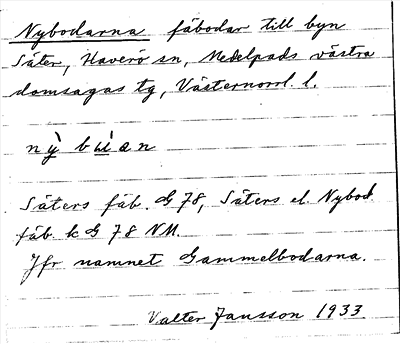 Nybodarna fäbodar till byn
Säter, Haverö sn, Medelpads västra
domsagas tg, Västernorrl. l.
nỳ bu̇an
Säters fäb. G 78, Säters el. Nybod
fäb. k G 78 NM.
Jfr namnet Gammelbodarna.
Valter Jansson 1933